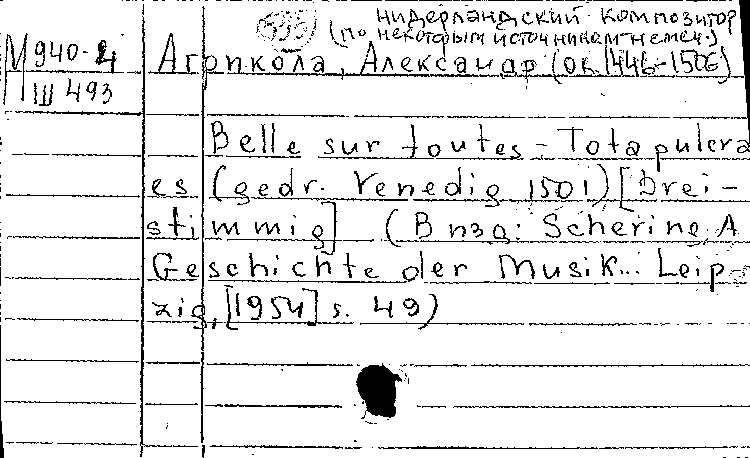 нидерландский композитор
(по некоторым источникам немец.)
М940-4 Агрикола, Александр (ок. 1446-1506)
Ш 493
Belle sur toutes - Tota pulcra
es (gedr. Venedig 1501) [Drei-
stimmig] (В изд: Schering A
Geschichte der Musik... Leip-
zig, [1954] s. 49)